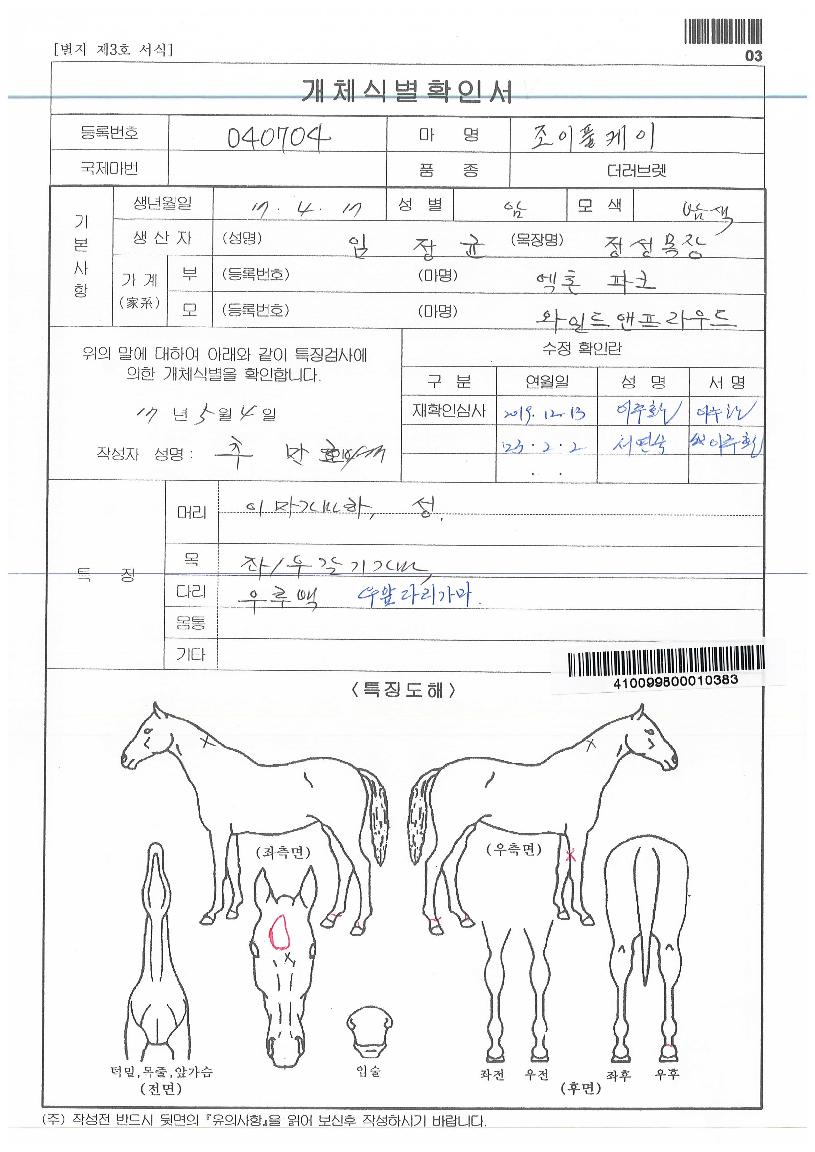 [별지 제3호 서식]
03
개체식별확인서
등록번호 040704 마 명 조이플케이
국제마번 품 종 더러브렛
기본사항
생년월일 17. 4. 17 성 별 암 모 색 밤색
생 산 자 (성명) 임 장 균 (목장명) 장성목장
가 계 (家系) 부 (등록번호) (마명) 엑톤 파크
모 (등록번호) (마명) 와일드앤프라우드
위의 말에 대하여 아래와 같이 특징검사에
의한 개체식별을 확인합니다.
17 년 5 월 4 일
작성자 성명 : 추 만
수정 확인란
구 분 연월일 성 명 서 명
재확인심사 2019. 12. 13 이주환 이주환
'23 · 2 · 2 서연숙
· ·
특 징
머리 이마가마하, 성.
목 좌/우갈기가마
다리 우후백 우앞다리가마.
몸통
기타
410099800010383
<특징도해>
(좌측면) (우측면)
턱밑,목줄,앞가슴
(전면)
입술
좌전 우전 좌후 우후
(후면)
(주) 작성전 반드시 뒷면의 『유의사항』을 읽어 보신후 작성하시기 바랍니다.